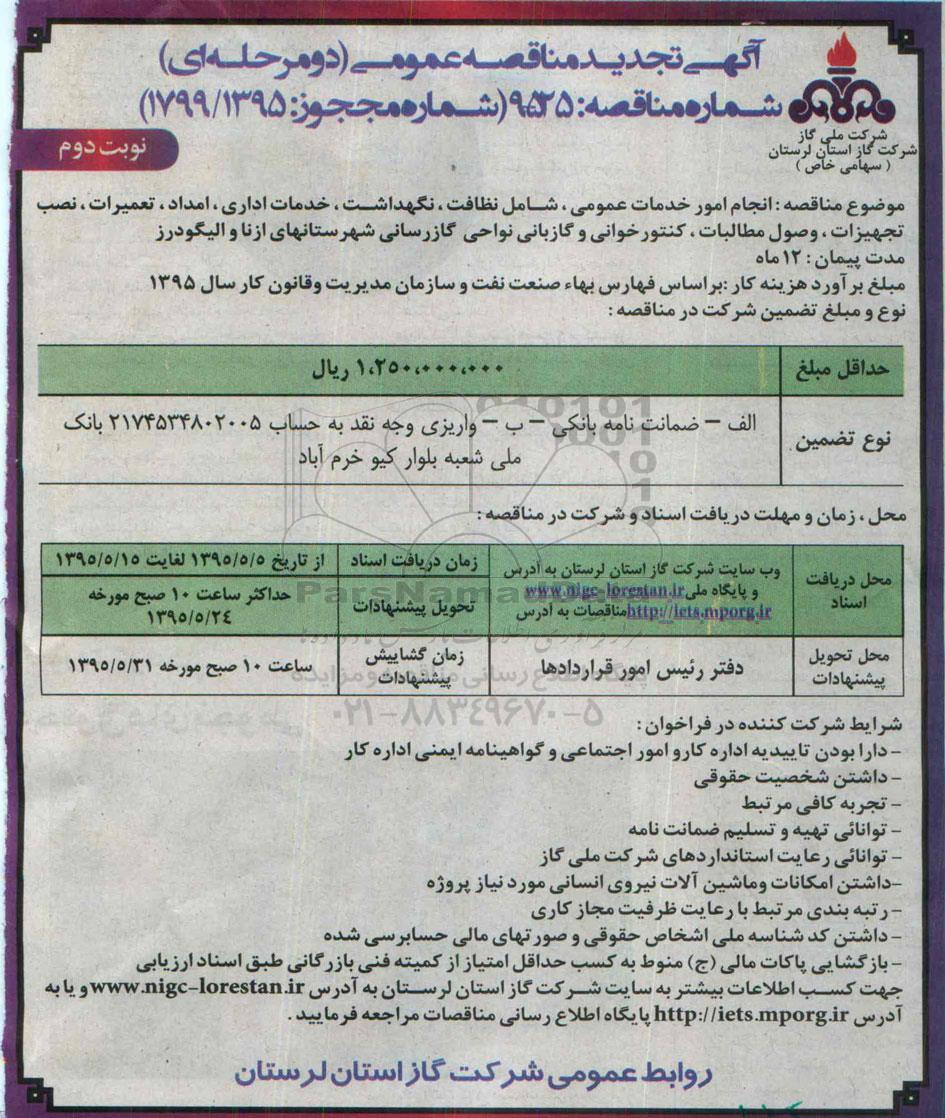 آگهی تجدید مناقصه عمومی (دو مرحله‌ای)
شماره مناقصه: (شماره مججوز: ۱۷۹۹/۱۳۹۵)
شرکت ملی گاز
شرکت گاز استان لرستان
( سهامی خاص )
نوبت دوم
موضوع مناقصه : انجام امور خدمات عمومی ، شامل نظافت ، نگهداشت ، خدمات اداری ، امداد ، تعمیرات ، نصب
تجهیزات ، وصول مطالبات ، کنتورخوانی و گازبانی نواحی گازرسانی شهرستانهای ازنا و الیگودرز
مدت پیمان : ۱۲ ماه
مبلغ برآورد هزینه کار :براساس فهارس بهاء صنعت نفت و سازمان مدیریت وقانون کار سال ۱۳۹۵
نوع و مبلغ تضمین شرکت در مناقصه :
حداقل مبلغ ۱،۲۵۰،۰۰۰،۰۰۰ ریال
نوع تضمین. الف – ضمانت نامه بانکی – ب – واریزی وجه نقد به حساب ۲۱۷۴۵۳۴۸۰۲۰۰۵ بانک
ملی شعبه بلوار کیو خرم آباد
محل ، زمان و مهلت دریافت اسناد و شرکت در مناقصه :
محل دریافت اسناد
وب سایت شرکت گاز استان لرستان به آدرس
www.nigc-lorestan.ir و پایگاه ملی
مناقصات به آدرس http://iets.mporg.ir
زمان دریافت اسناد از تاریخ ۱۳۹۵/۵/۵ لغایت ۱۳۹۵/۵/۱۵
تحویل پیشنهادات حداکثر ساعت ۱۰ صبح مورخه
۱۳۹۵/۵/۲۴
محل تحویل پیشنهادات دفتر رئیس امور قراردادها
زمان گشاییش پیشنهادات ساعت ۱۰ صبح مورخه ۱۳۹۵/۵/۳۱
ParsNamadData
پایگاه اطلاع رسانی مناقصه و مزایده
۰۲۱-۸۸۳۴۹۶۷۰-۵
شرایط شرکت کننده در فراخوان :
- دارا بودن تاییدیه اداره کارو امور اجتماعی و گواهینامه ایمنی اداره کار
- داشتن شخصیت حقوقی
- تجربه کافی مرتبط
- توانائی تهیه و تسلیم ضمانت نامه
- توانائی رعایت استانداردهای شرکت ملی گاز
-داشتن امکانات وماشین آلات نیروی انسانی مورد نیاز پروژه
- رتبه بندی مرتبط با رعایت ظرفیت مجاز کاری
- داشتن کد شناسه ملی اشخاص حقوقی و صورتهای مالی حسابرسی شده
- بازگشایی پاکات مالی (ج) منوط به کسب حداقل امتیاز از کمیته فنی بازرگانی طبق اسناد ارزیابی
جهت کسب اطلاعات بیشتر به سایت شرکت گاز استان لرستان به آدرس www.nigc-lorestan.ir و یا به
آدرس http://iets.mporg.ir پایگاه اطلاع رسانی مناقصات مراجعه فرمایید .
روابط عمومی شرکت گاز استان لرستان